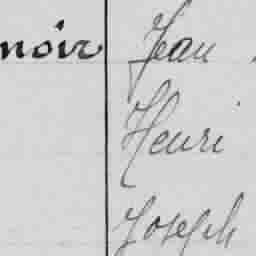 noir Jean
Henri
Joseph